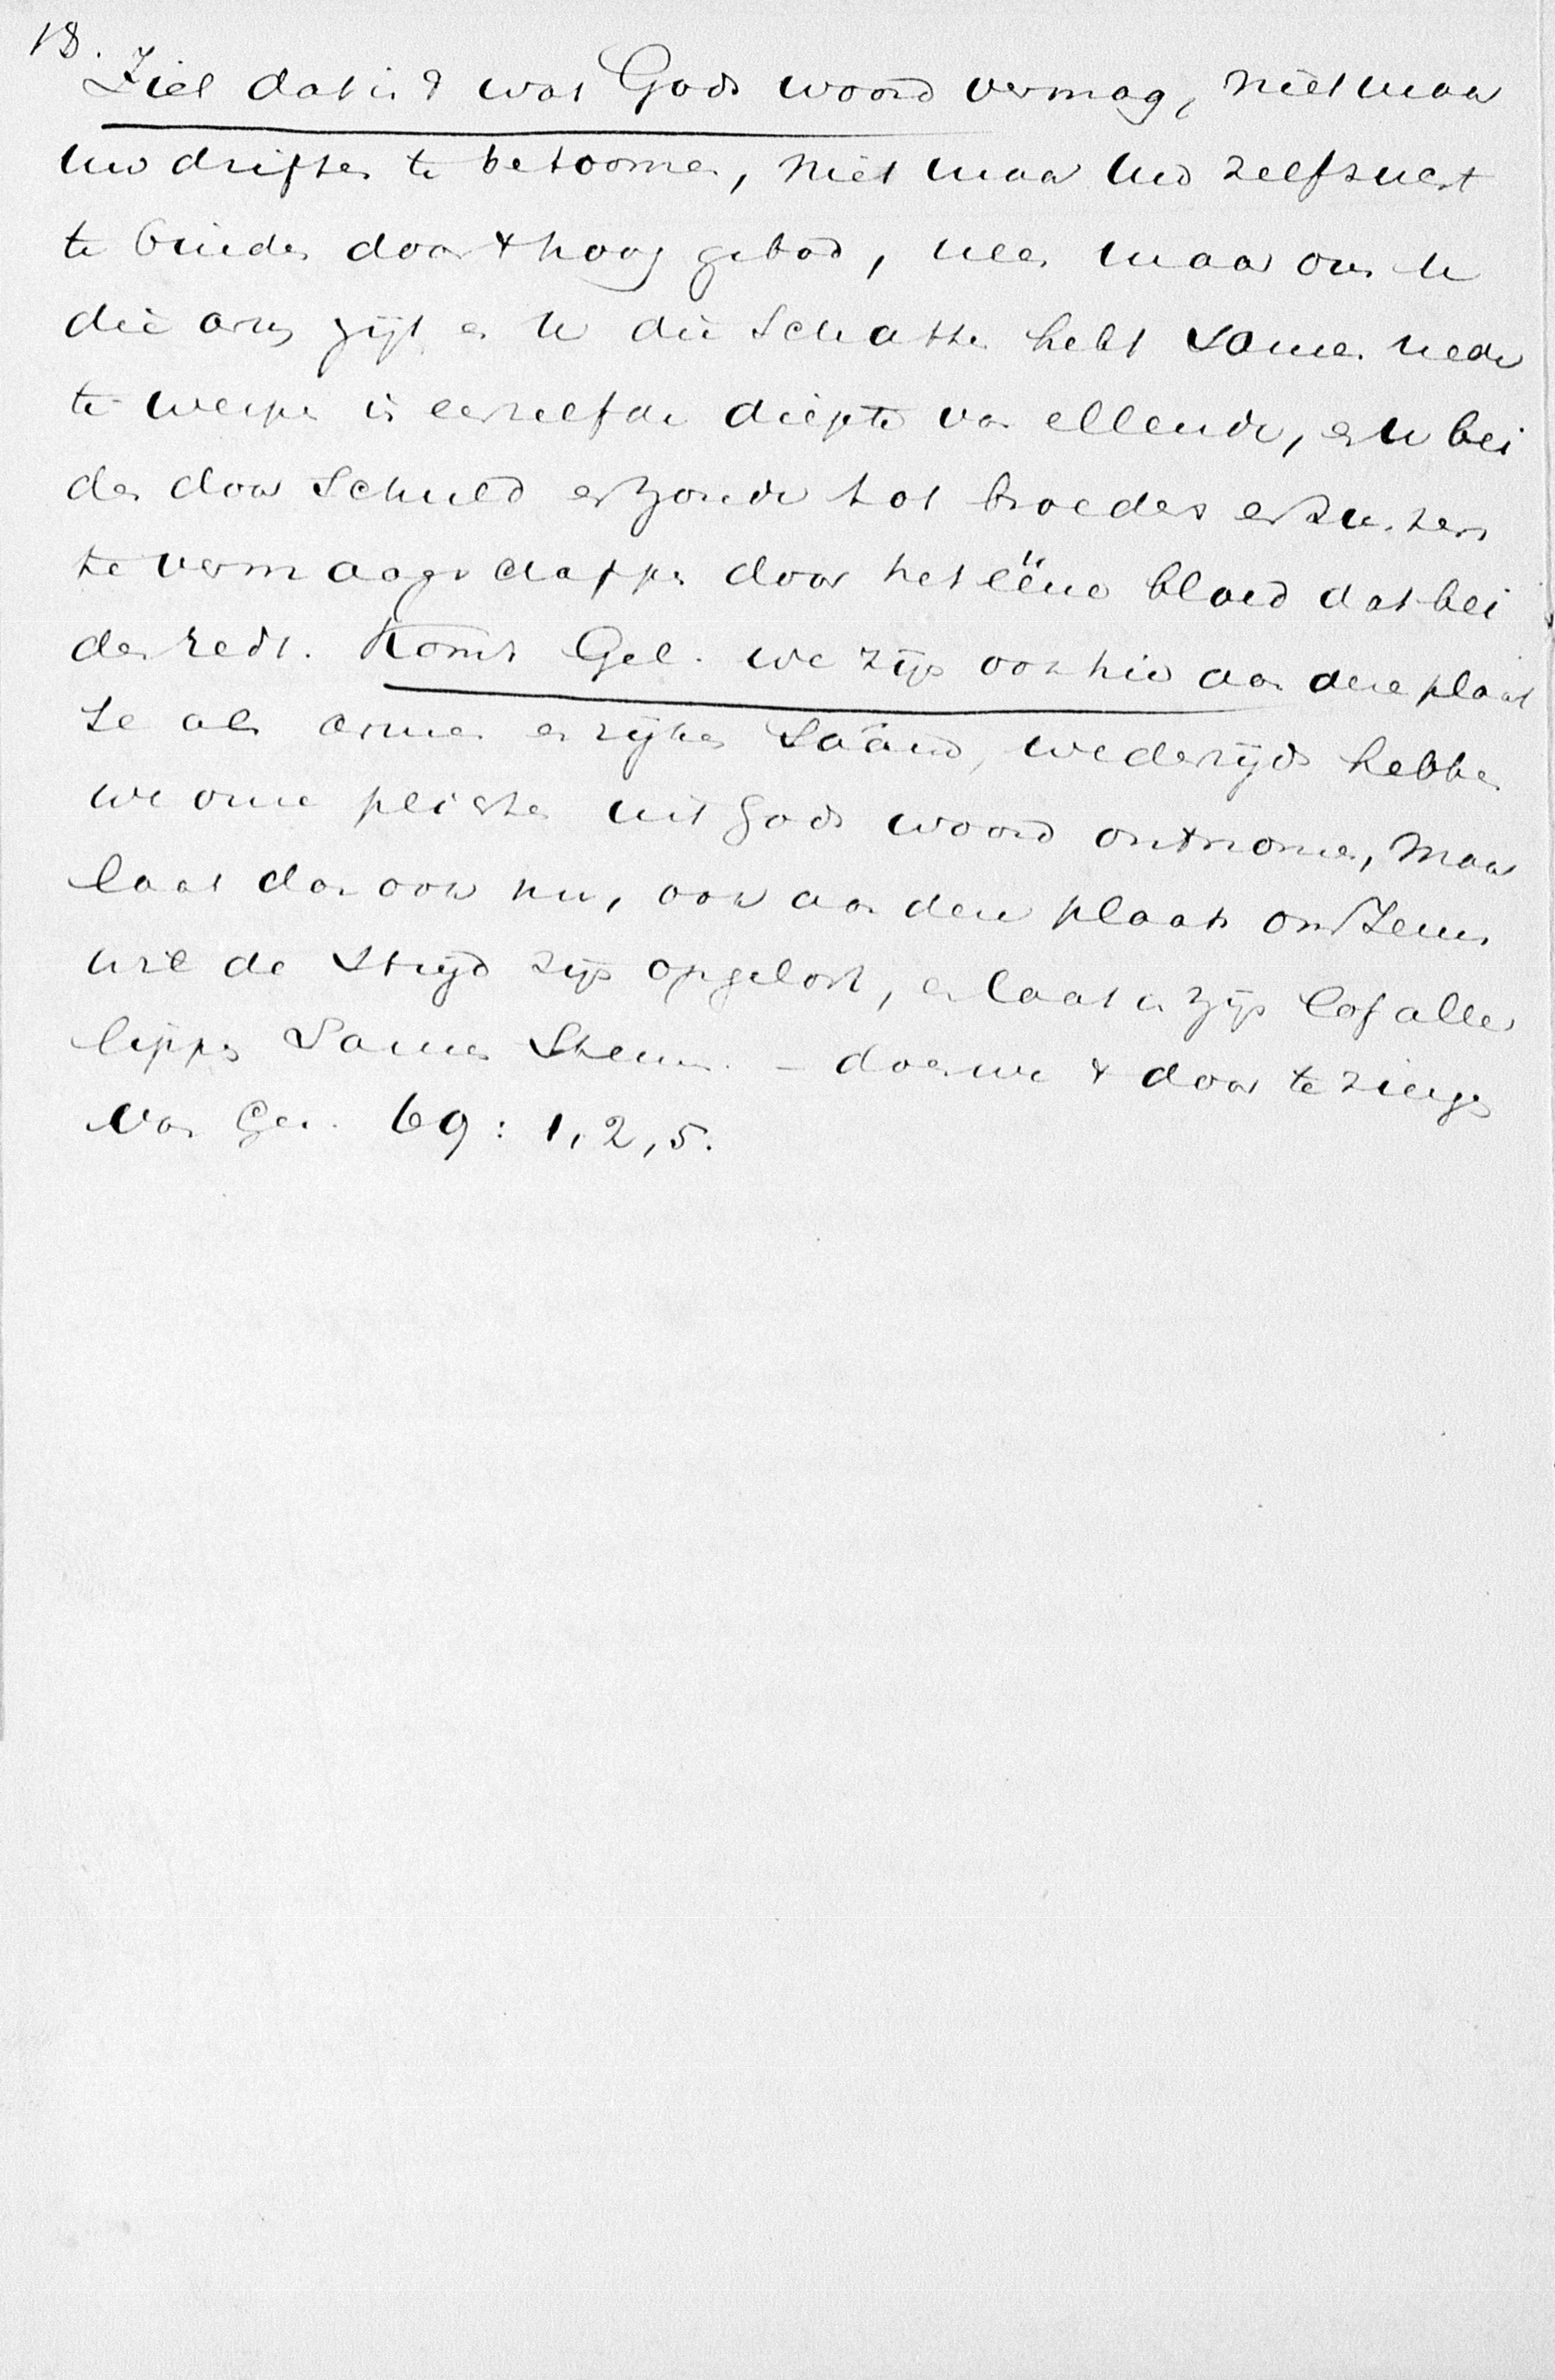 18.
Ziet dat is 't wat Gods woord vermag, niet maar
uw driften te betoomen, niet maar uw zelfzucht
te binden door 't hoog gebod, neen maar om u
die arm zijt en u die schatten hebt samen neder
te werpen in eenzelfde diepte van ellende, en u bei
den door schuld en zonde tot broeders en zusters
te vermaagschappen door het ééne bloed dat bei
den redt. Komt Gel. we zijn ook hier aan deze plaat
se als armen en rijken saâm, wederzijds hebben
we onze plichten uit Gods woord ontnomen, maar
laat dan ook nu, ook aan deze plaats om Jezus
wil de strijd zijn opgelost, en laat in zijn lof aller
lippen samen stemmen. – doen we 't door te zingen
van Gez. 69: 1, 2, 5.